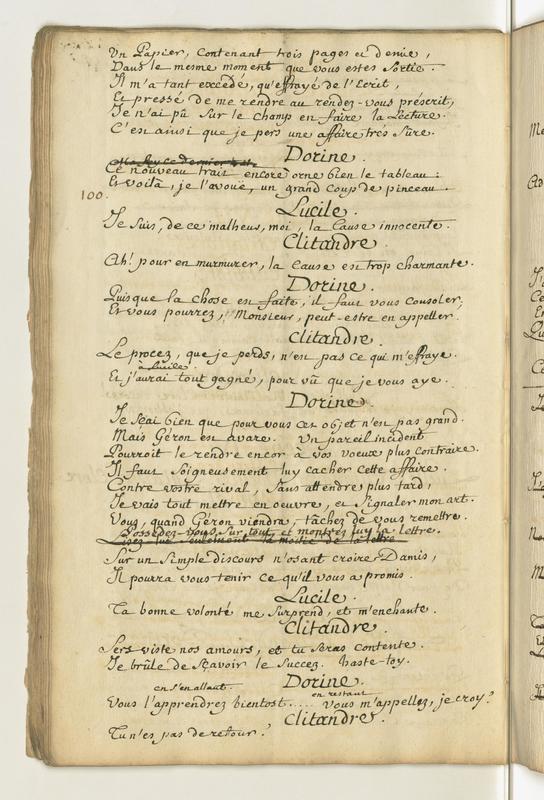 Un Papier, contenant trois pages et demie,
Dans le mesme moment que vous estes sortie.
Il m'a tant excédé, qu'effrayé de l'Ecrit,
Et pressé de me rendre au rendez-vous préscrit,
Je n'ai pû sur le champ en faire la Lecture.
C'est ainsi que je pers une affaire trés sûre.
Dorine.
Ce nouveau trait encore orne bien le tableau:
100. Et voilà, je l'avoue, un grand coup de pinceau.
Lucile.
Je suis, de ce malheur, moi, la Cause innocente.
Clitandre.
Ah! pour en murmurer, la cause est trop charmante.
Dorine.
Puisque la chose est faite, il faut vous consoler;
Et vous pourrez, Monsieur, peut-estre en appeller.
Clitandre.
Le procez, que je perds, n'est pas ce qui m'effraye.
à Lucile.
Et j'aurai tout gagné, pour vû que je vous aye.
Dorine.
Je sçai bien que pour vous cet objet n'est pas grand.
Mais Géron est avare. Un pareil incident
Pourroit le rendre encor à vos voeux plus contraire.
Il faut soigneusement luy cacher cette affaire.
Contre vostre rival, sans attendre plus tard,
Je vais tout mettre en oeuvre, et signaler mon art.
Vous, quand Géron viendra, tâchez de vous remettre.
Possedez-vous sur tout, et montrez luy la lettre.
la moitié de la lettre
Sur un simple discours n'osant croire Damis,
Il pourra vous tenir ce qu'il vous a promis.
Lucile.
Ta bonne volonté me surprend, et m'enchante.
Clitandre.
Sers viste nos amours, et tu seras contente.
Je brûle de sçavoir le succez. haste-toy.
Dorine.
en s'en allant. en restant
Vous l'apprendrez bientost..... vous m'appellez, je croy?
Clitandre.
Tu n'es pas de retour?